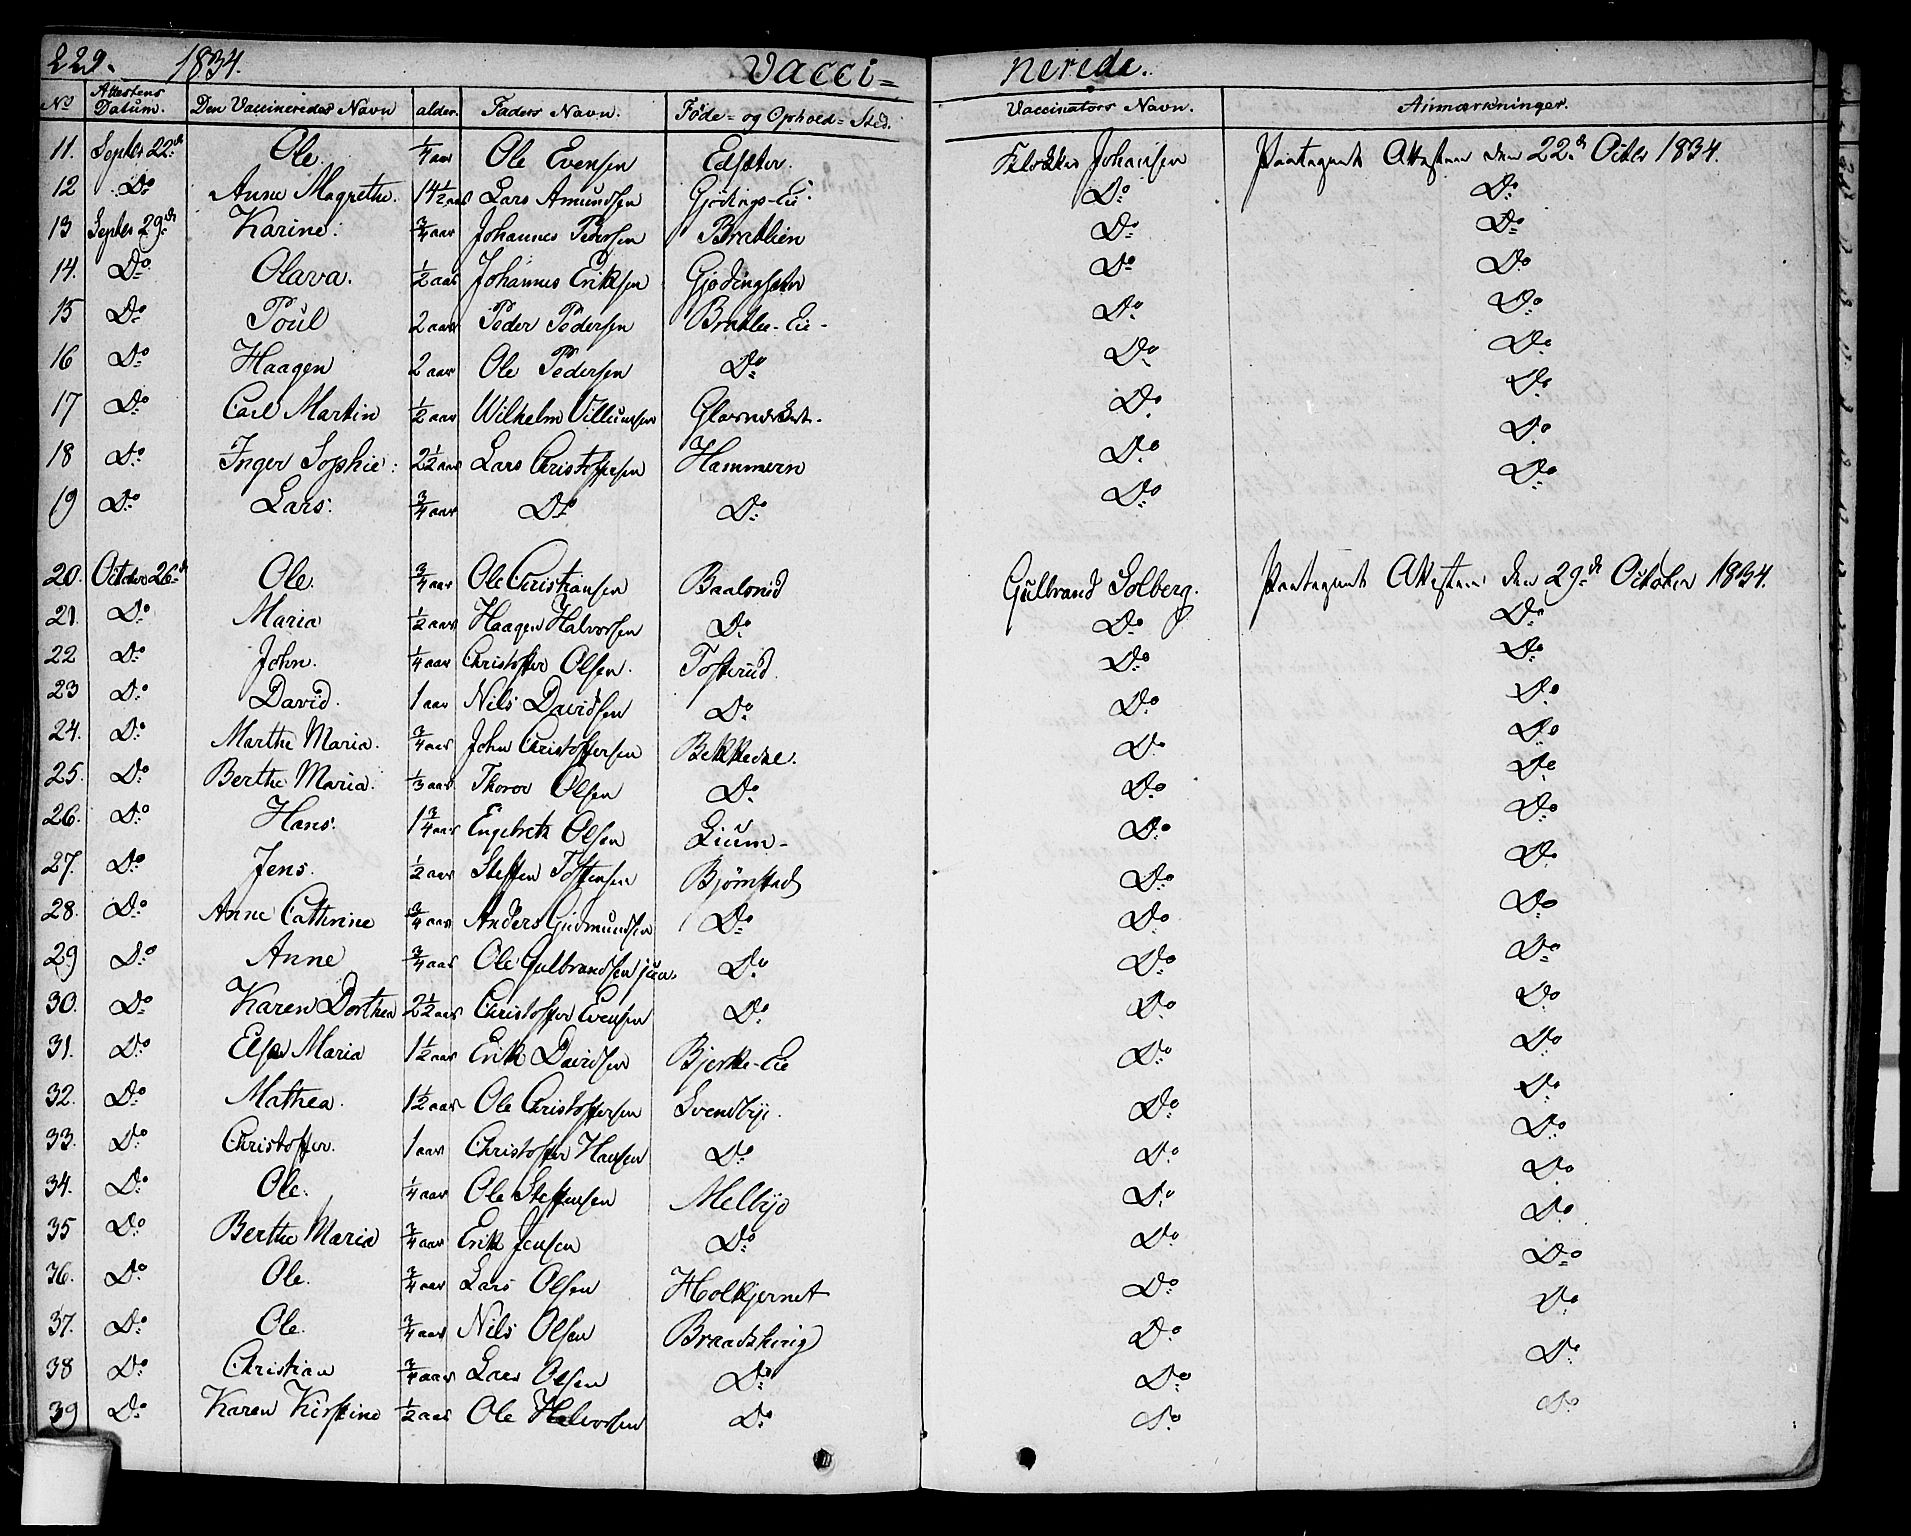 229. 1834. Vacci= nerede.
No Attestens Datum. Den Vaccineredes Navn alder. Faders Navn. Føde= og Ophold= Sted. Vaccinators Navn. Anmærkninger.
11. Septbr 22de Ole. 1/4 aar Ole Evensen Edsæter. Klokker Johansen Attesten den 22de Octbr 1834.
12 Do Anne Magrethe. 14 1/2 aar Lars Amundsen Gjødings-Eie Do Do
13 Septbr 29de Karine. 3/4 aar Johannes Pedersen Bratlien Do Do
14. Do Olava. 1/2 aar Johannes Eriksen Do Do
15 Do Poul 2 aar Peder Pedersen Bratlie-Eie- Do Do
16 Do Haagen 2 aar Ole Pedersen Do Do Do
17 Do Carl Martin 1/2 aar Wilhelm Villumsen Do Do
18 Do Inger Sophie: 2 1/2 aar Lars Christoffersen Hammern Do Do
19 Do Lars: 3/4 aar Do Do Do Do
20. October 26de Ole. 3/4 aar Ole Christiansen Baalsrud Gulbrand Solberg. Attesten den 29de October 1834.
21. Do Maria 1/2 aar Haagen Halvorsen Do Do Do
22 Do John. 1/4 aar Christoffer Olsen. Tosterud. Do Do
23 Do David. 1 aar Nils Davidsen Do Do Do
24. Do Marthe Maria. 3/4 aar John Christoffersen Do Do
25. Do Berthe Maria. 1/3 aar Thoror Olsen Do Do Do
26. Do Hans. 1 3/4 aar Engebreth Olsen Lium- Do Do
27. Do Jens. 1/2 aar Steffen Tostensen Bjørnstad Do Do
28. Do Anne Cathrine 3/4 aar Anders Gudmundsen Do Do Do
29 Do Anne 3/4 aar Ole Gulbrandsen jun. Do Do Do
30. Do Karen Dorthea 2 1/2 aar Christoffer Evensen Do Do Do
31. Do Else Maria 1 1/2 aar Erik Davidsen Bjerke-Eie Do Do
32. Do Mathea. 1 1/2 aar Ole Christoffersen Svendbye. Do Do
33. Do Christoffer. 1 aar Christoffer Hansen Do Do Do
34. Do Ole. 1/4 aar Ole Steffensen Melbye Do Do
35 Do Berthe Maria 3/4 aar Erik Jensen Do Do Do
36. Do Ole. 3/4 aar Lars Olsen Holtjernet Do Do
37. Do Ole. 3/4 aar Nils Olsen Do Do
38 Do Christian 3/4 aar Lars Olsen Do Do Do
39 Do Karen Kirstine 1/2 aar Ole Halvorsen Do Do Do